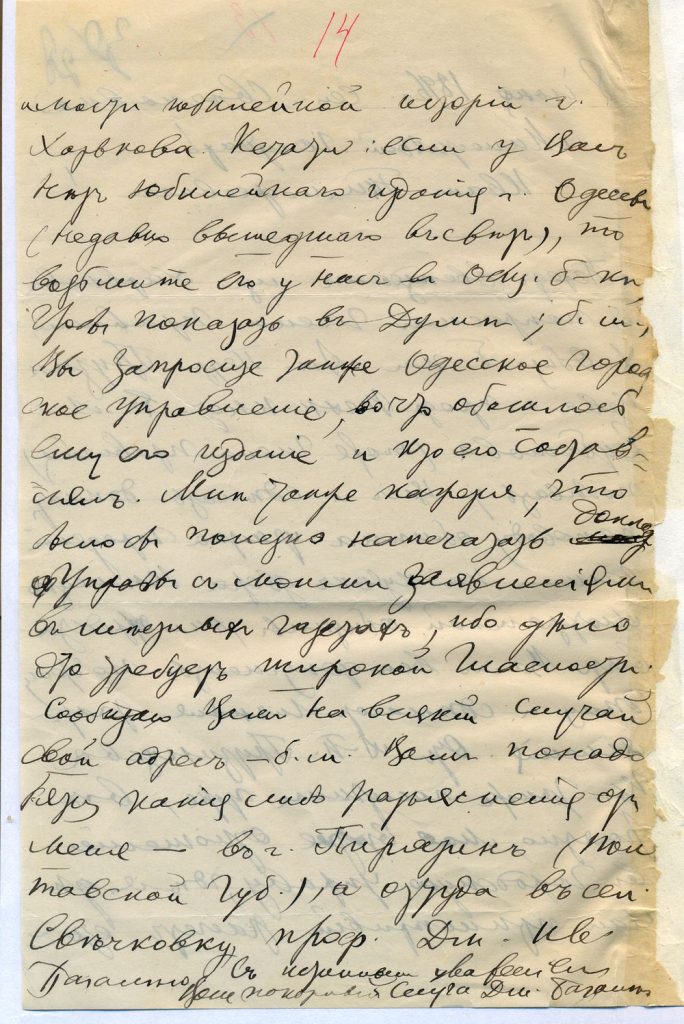 14
мости юбилейной исторіи г.
Харькова. Кстати: если у Васъ
нѣтъ юбилейнаго изданія г. Одессы
(недавно вышедшаго въ свѣтъ), то
возьмите его у насъ въ Общ. б-кѣ
чтобы показать въ Думѣ; б. м.,
Вы запросите также Одесское город
ское управленіе, во что обошлось
ему его изданіе и кто его состав=
лялъ. Мнѣ также кажется, что
было бы полезно напечатать доклад
Управы съ моими заявленіями
въ мѣстныхъ газетахъ, ибо дѣло
это требуетъ широкой гласности.
Сообщаю Вамъ на всякій случай
свой адресъ – б. м. Вамъ понадо
бятся какія либо разъясненія отъ
меня – въ г. Пирятинъ (Пол
тавской губ.), а оттуда въ сел.
Свѣчковку, проф. Дм. Ив.
Багалѣю. Съ истиннымъ уваженіемъ
Вашъ покорный слуга Дм. Багалѣй